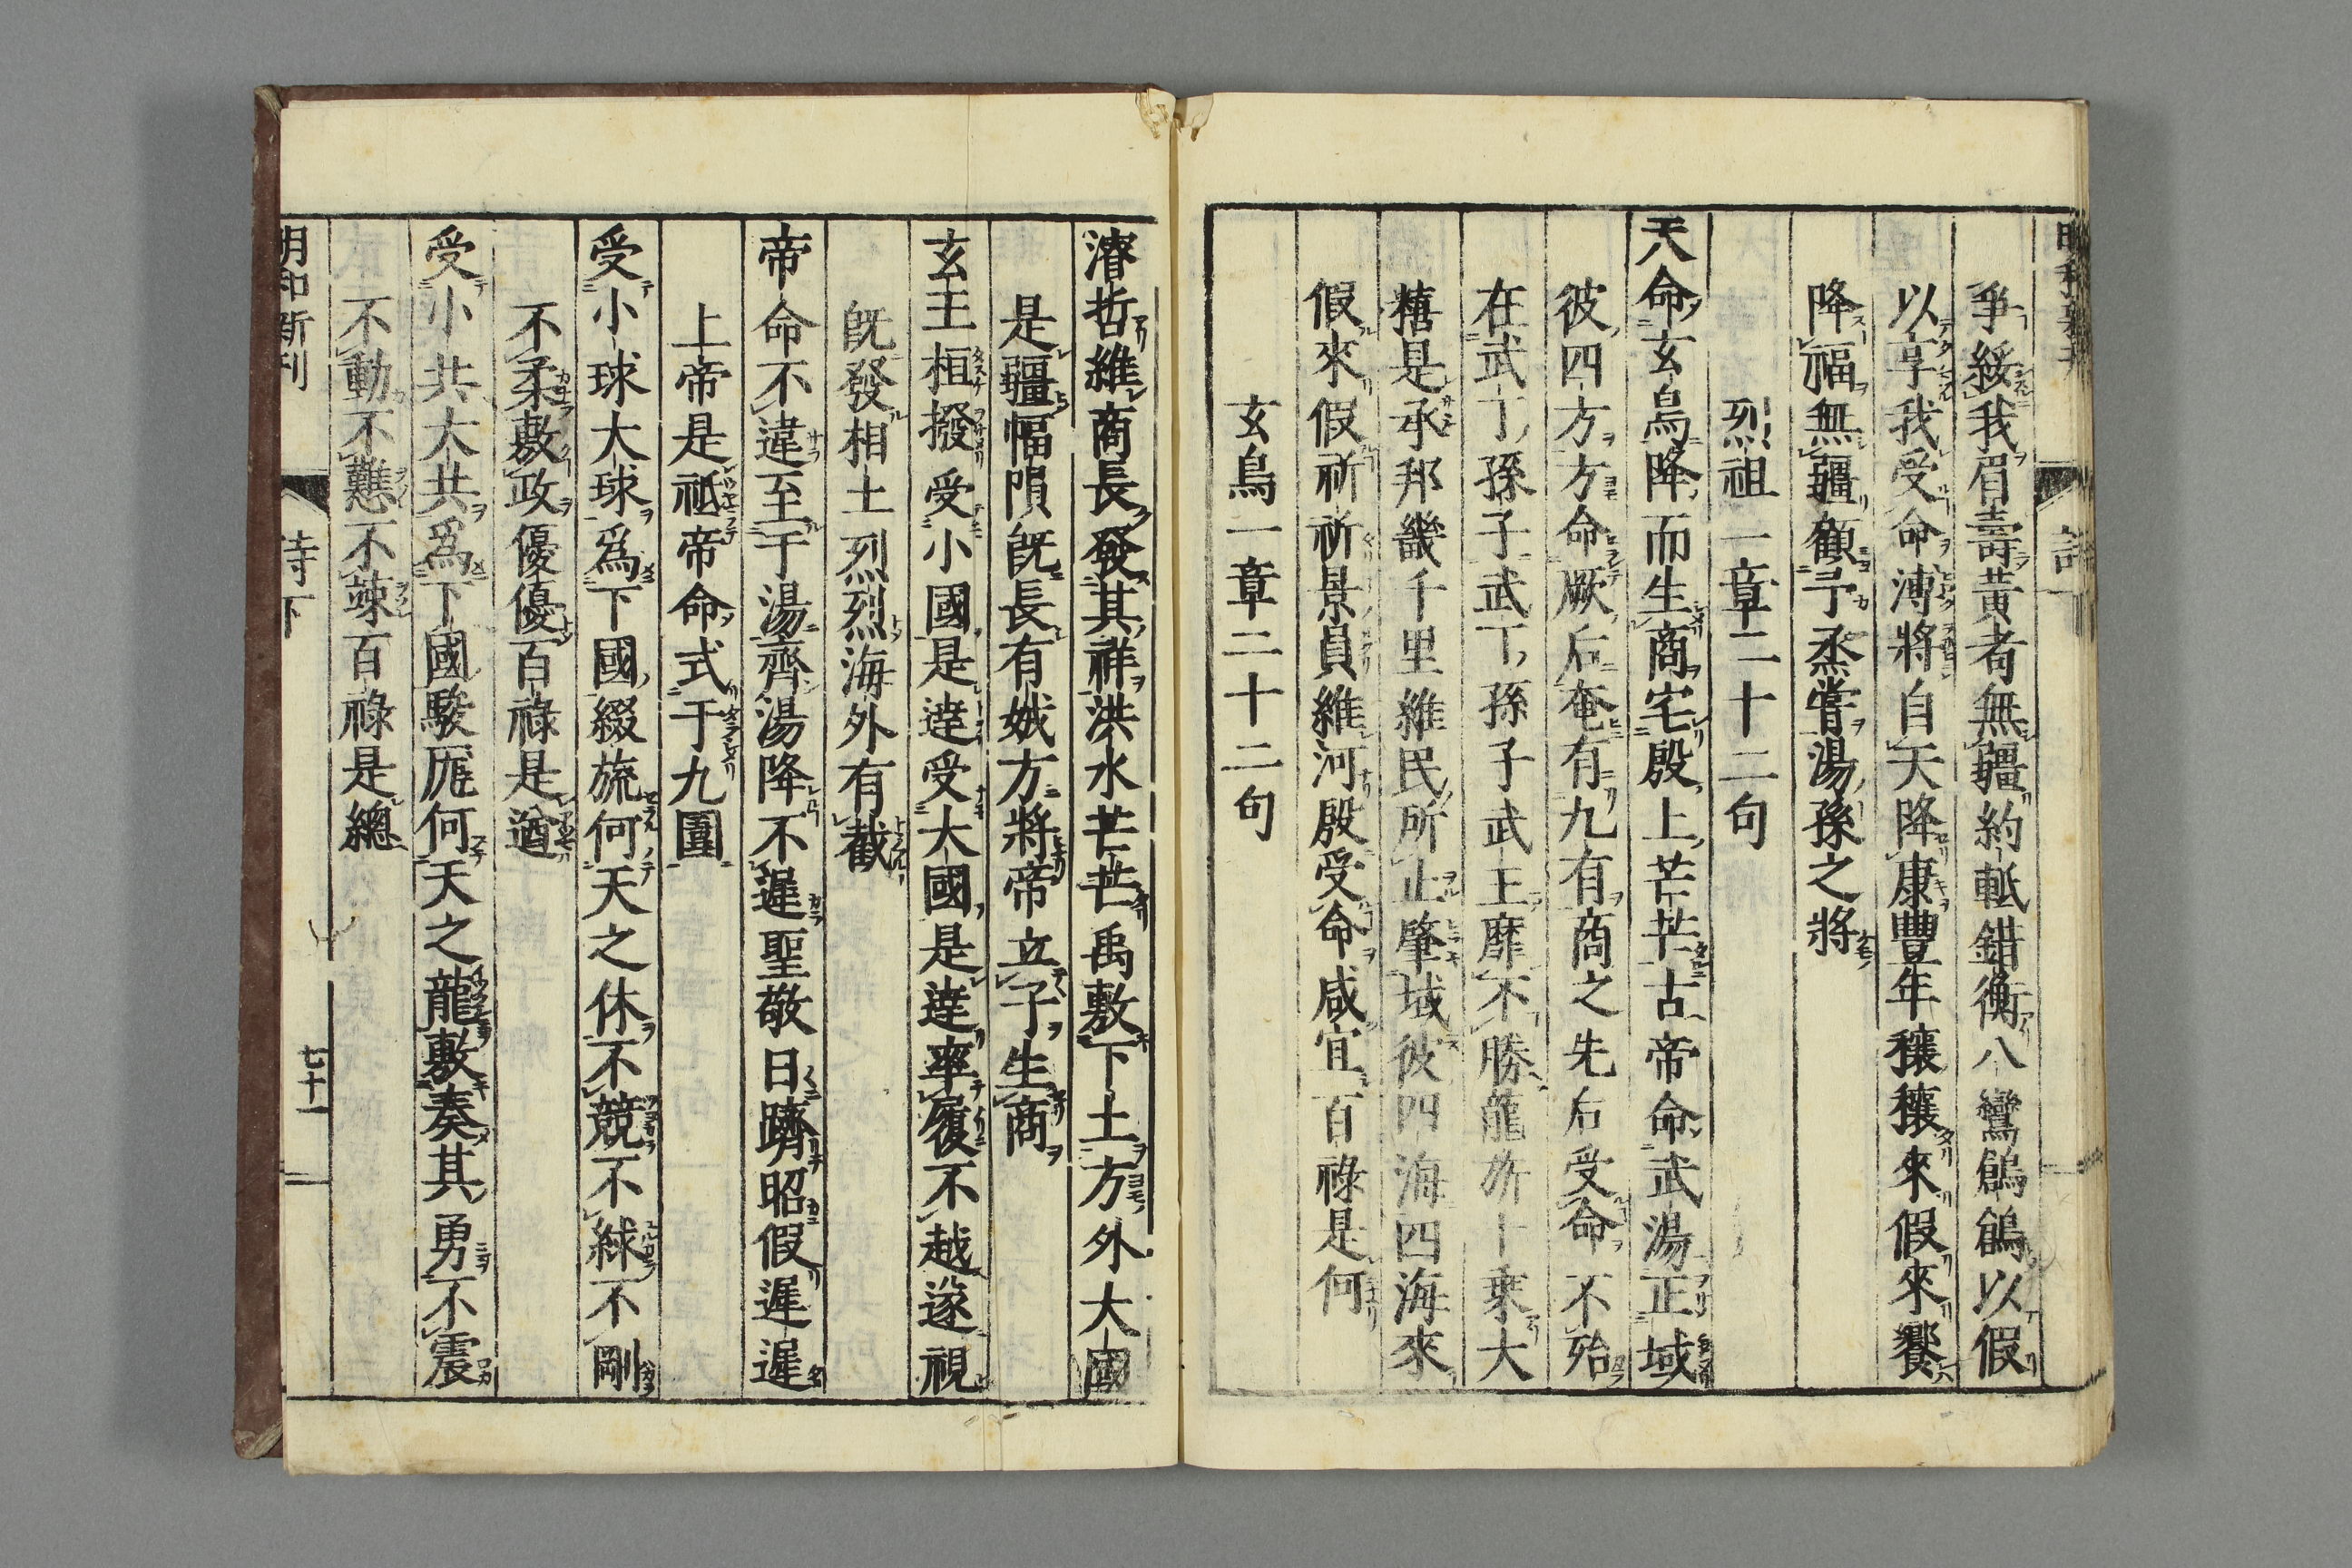 爭綏我眉壽黃耇無疆約軝錯衡八鸞鶬鶬以假
以享我受命溥將自天降康豐年穰穰來假來饗
降福無疆顧予烝嘗湯孫之將
烈祖一章二十二句
天命玄鳥降而生商宅殷土芒芒古帝命武湯正域
彼四方方命厥后奄有九有商之先后受命不殆
在武丁孫子武丁孫子武王靡不勝龍旂十乘大
糦是承邦畿千里維民所止肇域彼四海四海來
假來假祈祈景員維河殷受命咸宜百祿是何
玄鳥一章二十二句
濬哲維商長發其祥洪水芒芒禹敷下土方外大國
是疆幅隕旣長有娀方將帝立子生商
玄王桓撥受小國是達受大國是達率履不越遂視
旣發相土烈烈海外有截
帝命不違至于湯齊湯降不遲聖敬日躋昭假遲遲
上帝是祗帝命式于九圍
受小球大球爲下國綴旒何天之休不競不絿不剛
不柔敷政優優百祿是遒
受小共大共爲下國駿厖何天之龍敷奏其勇不震
不動不戁不竦百祿是總
明和新刊
詩下
七十一